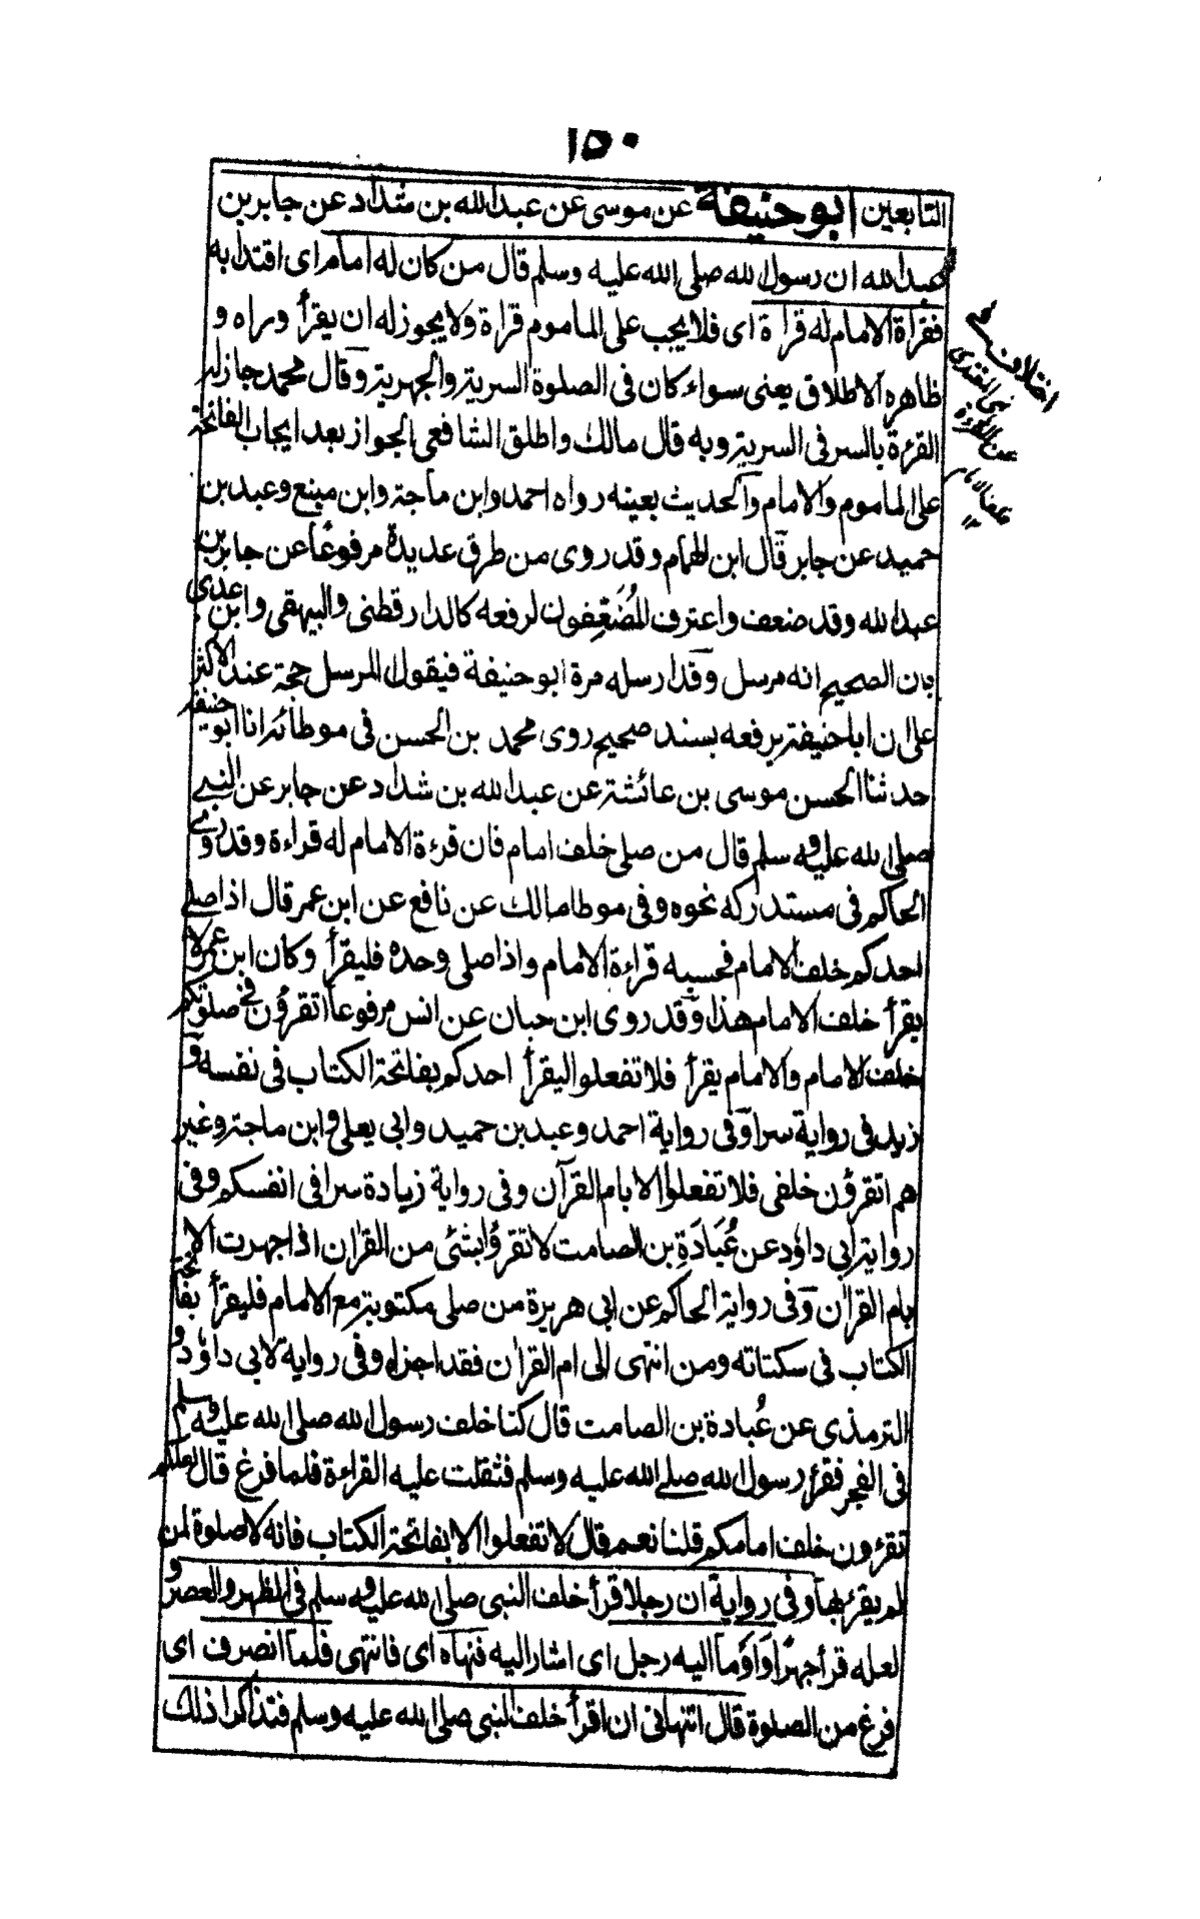 ١٥٠
التابعين ابو حنيفة عن موسى عن عبد الله بن شداد عن جابر بن
عبد الله ان رسول الله صلى الله عليه وسلم قال من كان له امام اى اقتدا به
فقراة الامام له قراة اى فلا يجب على الماموم قراة ولا يجوز له ان يقرأ وراه و
ظاهره الاطلاق يعنى سواء كان فى الصلوة السرية والجهرية وقال محمد جاز له
القرءة بالسر فى السرية وبه قال مالك واطلق الشافعى الجواز بعد ايجاب الفاتحة
على الماموم والامام والحديث بعينه رواه احمد وابن ماجة وابن منيع وعبد بن
حميد عن جابر قال ابن الهمام وقد روى من طرق عديدة مرفوعا عن جابر بن
عبد الله وقد ضعف واعترف المُضَعِّفون لرفعه كالدارقطنى والبيهقى وابن عدى
بان الصحيح انه مرسل وقد ارسله مرة ابو حنيفة فيقول المرسل حجة عند الاكثر
على ان ابا حنيفة يرفعه بسند صحيح روى محمد بن الحسن فى موطائه انا ابو حنيفة
حدثنا الحسن موسى بن عائشة عن عبد الله بن شداد عن جابر عن النبے
صلى الله عليه وسلم قال من صلى خلف امام فان قرءة الامام له قراءة وقد روے
الحاكم فى مستدركه نحوه وفى موطا مالك عن نافع عن ابن عمر قال اذا صلے
احدكم خلف الامام فحسبه قراءة الامام واذا صلى وحده فليقرأ وكان ابن عمر لا
يقرأ خلف الامام هذا وقد روى ابن حبان عن انس مرفوعا اتقرؤن فے صلوتكم
خلف الامام والامام يقرأ فلا تفعلوا ليقرأ احدكم بفاتحة الكتاب فى نفسه و
زيد فى رواية سرا وفى رواية احمد وعبد بن حميد وابى يعلى وابن ماجة وغير
هم اتقرؤن خلفى فلا تفعلوا الا بام القرآن وفى رواية زيادة سرا فى انفسكم وفى
رواية ابى داؤد عن عُبَادَةِ بن الصامت لا تقرؤا بشئ من القران اذا جهرت الا
بام القران وفى رواية الحاكم عن ابى هريرة من صلى مكتوبة مع الامام فليقرأ بفاتحة
الكتاب فى سكتاته ومن انتهى الى ام القران فقد اجزاه وفى رواية لابى داؤد و
الترمذى عن عُبادة بن الصامت قال كنا خلف رسول الله صلى الله عليه وسلم
فى الفجر فقرء رسول الله صلے الله عليه وسلم فثقلت عليه القراءة فلما فرغ قال لعلكم
تقرءون خلف امامكم قلنا نعم قال لا تفعلوا الا بفاتحة الكتاب فانه لا صلوة لمن
لم يقرء بها وفى رواية ان رجلا قرأ خلف النبى صلى الله عليه وسلم فى الظهر والعصر و
لعله قرأ جهرًا وَاوْمَأ اليه رجل اى اشار اليه فنهاه اى فانتهى فلما انصرف اى
فرغ من الصلوة قال اتنهانى ان اقرأ خلف النبى صلى الله عليه وسلم فتذاكرا ذلك